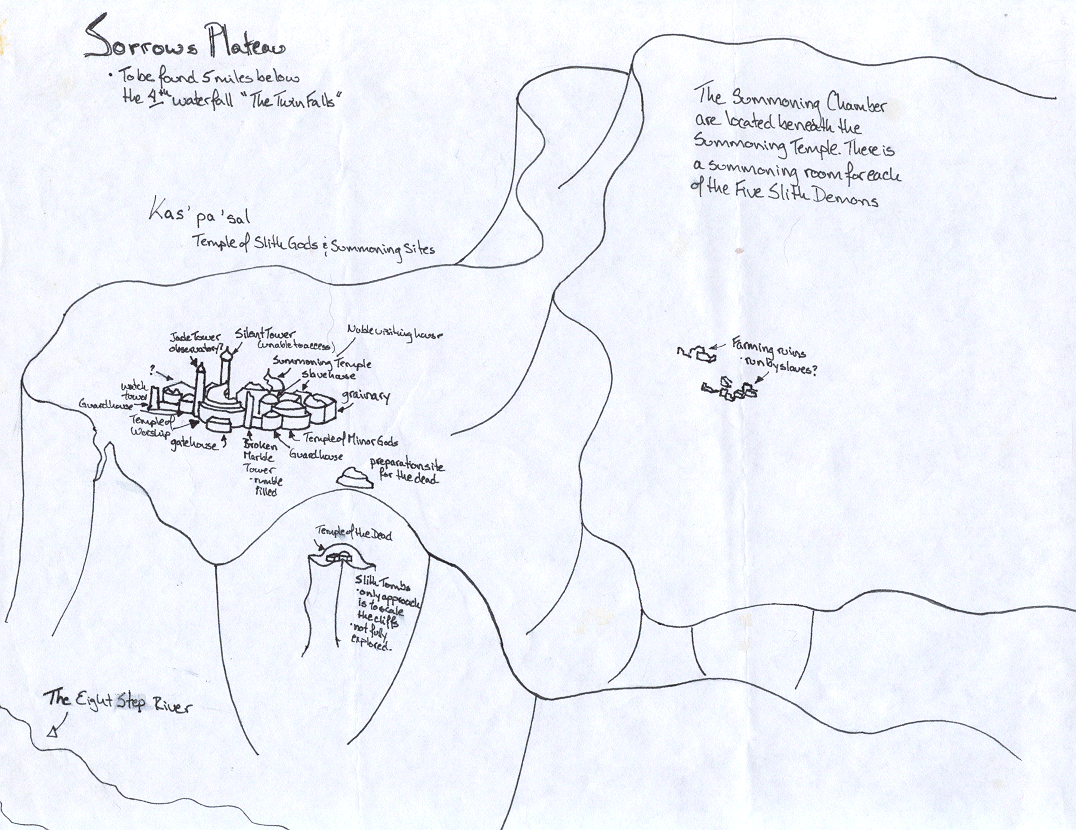 Sorrows Plateau
• To be found 5 miles below
the 4th waterfall "The Twin Falls"
The Summoning Chamber
are located beneath the
Summoning Temple. There is
a summoning room for each
of the Five Slith Demons
Kas' pa 'sal
Temple of Slith Gods & Summoning Sites
Jade Tower
observatory?
Silent Tower
(unable to access)
Noble visiting house
Summoning Temple
slavehouse
grainary
?
watch
tower
Guardhouse
Temple of
Worship
gatehouse
Broken
Marble
Tower
• rumble
filled
Guardhouse
Temple of Minor Gods
preparation site
for the dead
Farming ruins
• run by slaves?
Temple of the Dead
Slith Tombs
• only approach
is to scale
the cliffs
• not fully
explored.
The Eight Step River